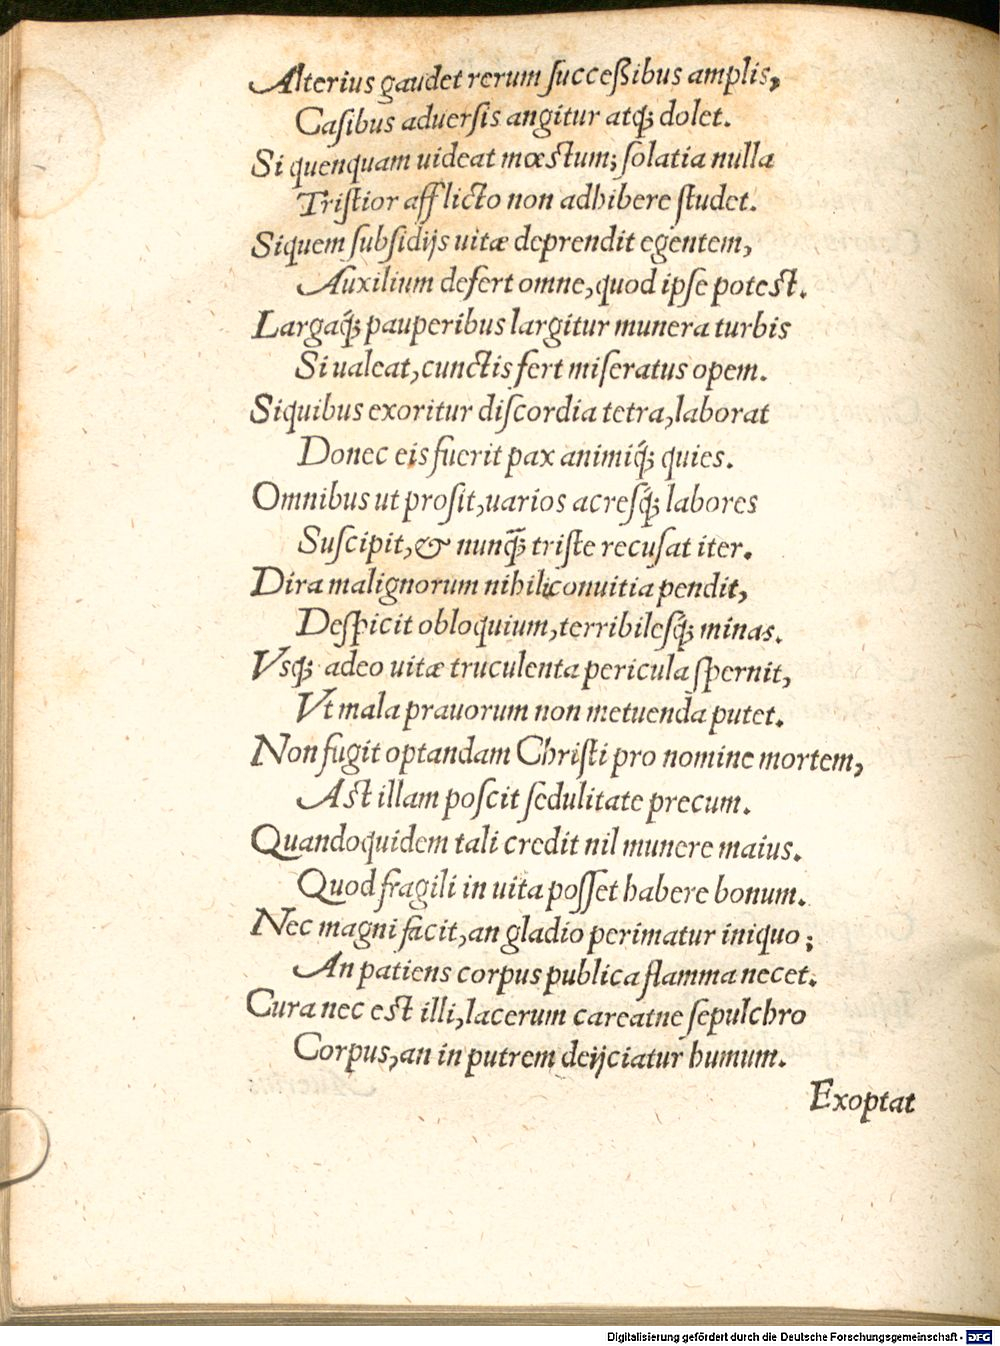 Alterius gaudet rerum succeßibus amplis,
Casibus aduersis angitur atq́; dolet.
Si quenquam uideat mœstum; solatia nulla
Tristior afflicto non adhibere studet.
Siquem subsidijs uitæ deprendit egentem,
Auxilium defert omne, quod ipse potest.
Largaq́; pauperibus largitur munera turbis
Si ualeat, cunctis fert miseratus opem.
Siquibus exoritur discordia tetra, laborat
Donec eis fuerit pax animiq́; quies.
Omnibus ut prosit, uarios acresq́; labores
Suscipit, & nunq̃; triste recusat iter.
Dira malignorum nihili conuitia pendit,
Despicit obloquium, terribilesq́; minas.
Vsq́; adeo uitæ truculenta pericula spernit,
Vt mala prauorum non metuenda putet.
Non fugit optandam Christi pro nomine mortem,
Ast illam poscit sedulitate precum.
Quandoquidem tali credit nil munere maius.
Quod fragili in uita posset habere bonum.
Nec magni facit, an gladio perimatur iniquo;
An patiens corpus publica flamma necet.
Cura nec est illi, lacerum careatne sepulchro
Corpus, an in putrem deijciatur humum.
Exoptat
Digitalisierung gefördert durch die Deutsche Forschungsgemeinschaft - DFG